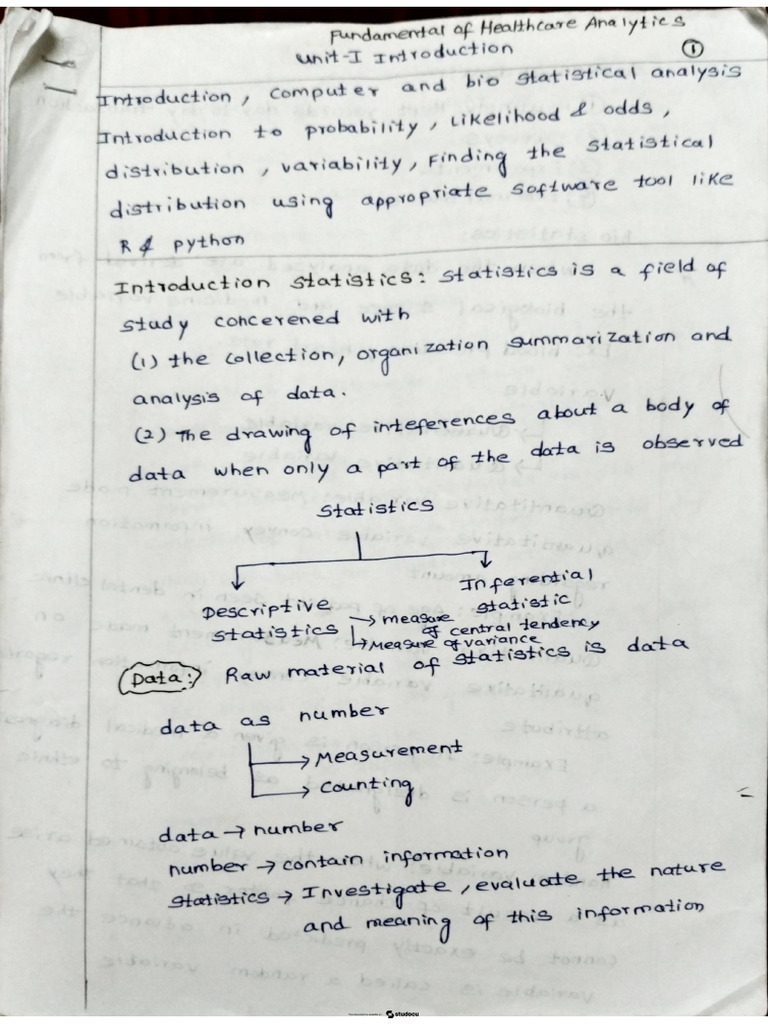 Fundamental of Healthcare Analytics
Unit-I Introduction ①
Introduction, computer and bio statistical analysis
Introduction to probability, Likelihood & odds,
distribution, variability, Finding the statistical
distribution using appropriate software tool like
R & python
Introduction statistics: statistics is a field of
study concerened with
(1) the collection, organization summarization and
analysis of data.
(2) The drawing of inteferences about a body of
data when only a part of the data is observed
Statistics
Descriptive statistics
→ measure of central tendency
→ Measure of variance
Inferential statistic
Data: Raw material of statistics is data
data as number
→ Measurement
→ Counting
data → number
number → contain information
statistics → Investigate, evaluate the nature
and meaning of this information
studocu